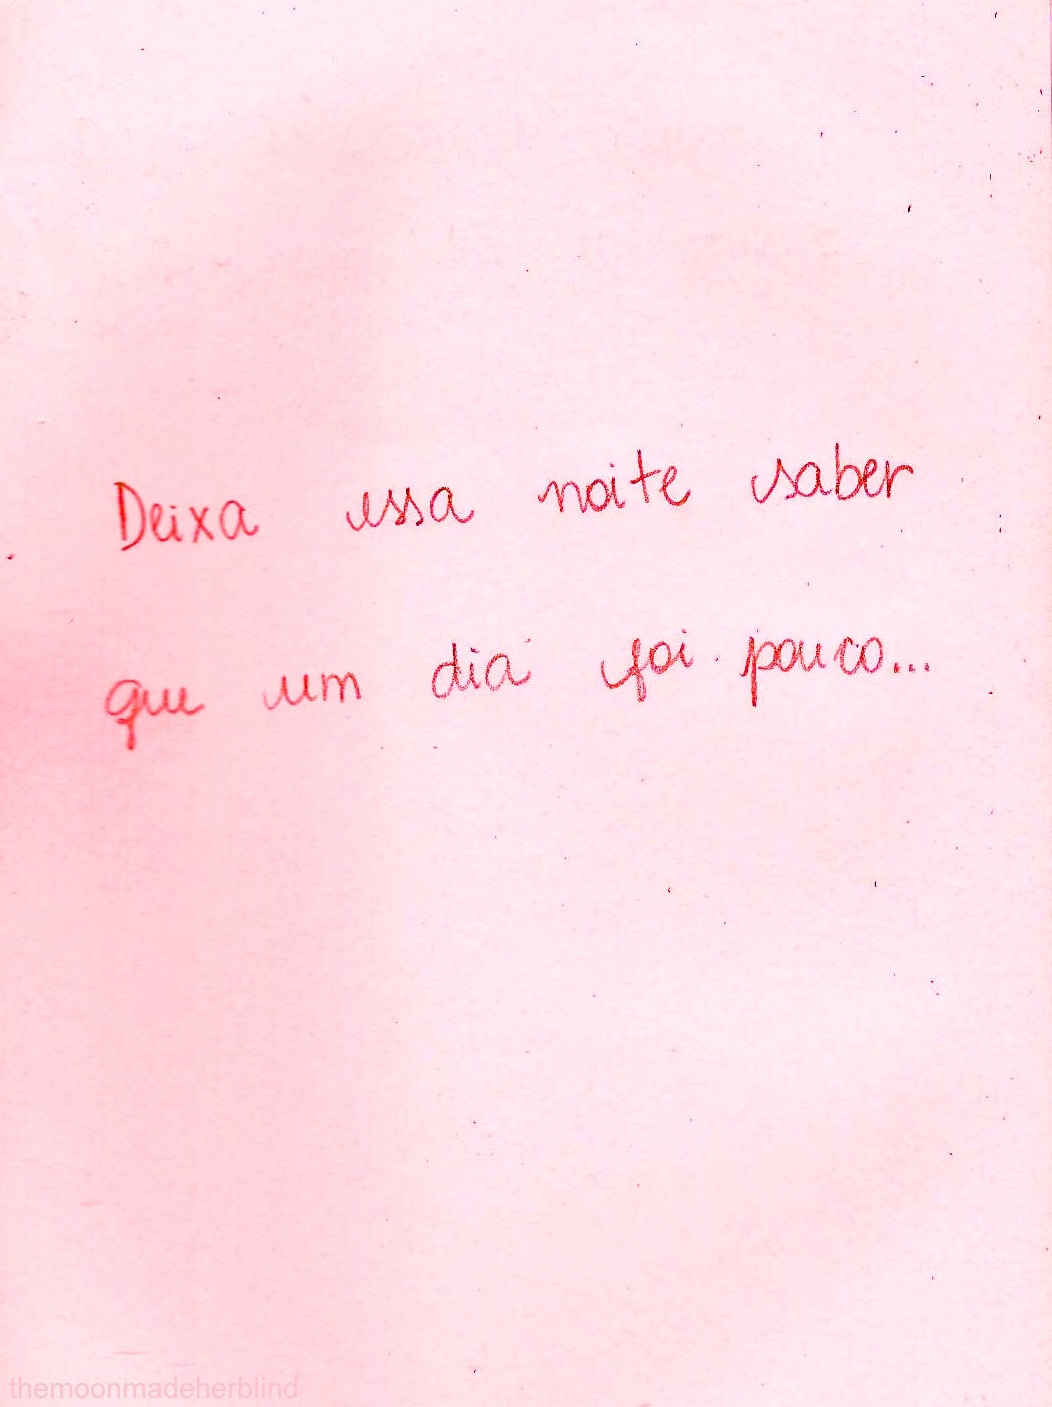 Deixa essa noite saber
que um dia foi pouco...
themoonmadeherblind